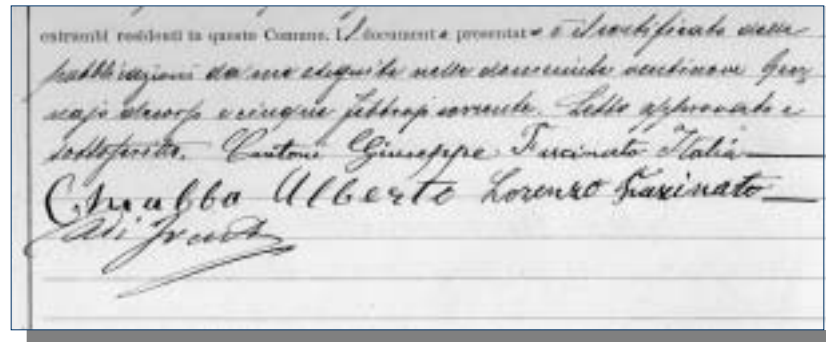 entrambi residenti in questo Comune. Il document o presentat o è il certificato delle
pubblicazioni da me eseguite nelle domeniche ventinove Gen
najo decorso e cinque febbrajo corrente. Letto approvato e
sottoscritto. Cantoni Giuseppe Fracinato Italia
Chiabba Alberto Lorenzo Fracinato